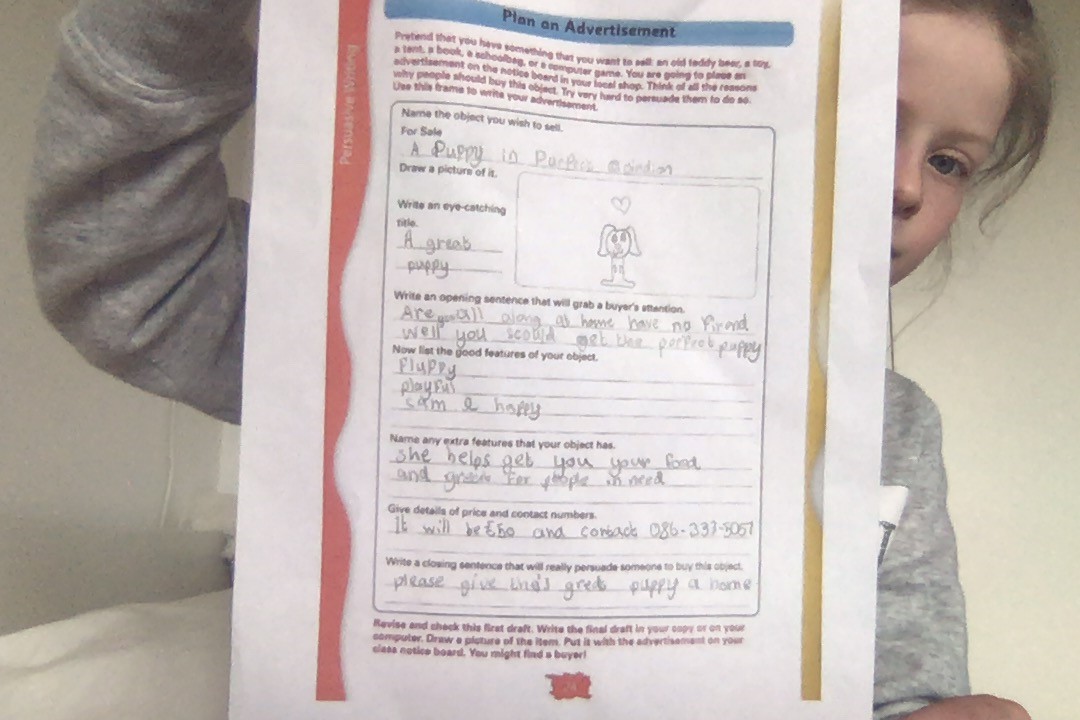 Plan an Advertisement
Persuasive Writing
Pretend that you have something that you want to sell: an old teddy bear, a toy,
a tent, a book, a schoolbag, or a computer game. You are going to place an
advertisement on the notice board in your local shop. Think of all the reasons
why people should buy this object. Try very hard to persuade them to do so.
Use this frame to write your advertisement.
Name the object you wish to sell.
For Sale
A Puppy in
Draw a picture of it.
Write an eye-catching
title.
A great
puppy
Write an opening sentence that will grab a buyer's attention.
Are you all along at home have no
well you get the perfect puppy
Now list the good features of your object.
fluppy
playful
happy
Name any extra features that your object has.
she helps get you your food
and for people in need
Give details of price and contact numbers.
It will be and contact
Write a closing sentence that will really persuade someone to buy this object.
please give this gret puppy a home
Revise and check this first draft. Write the final draft in your copy or on your
computer. Draw a picture of the item. Put it with the advertisement on your
class notice board. You might find a buyer!